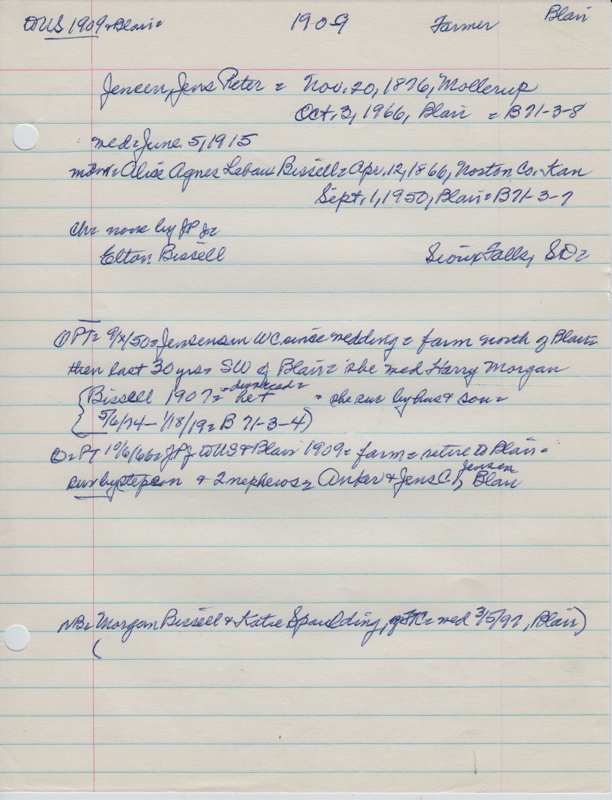 DUS 1909 & Blair = 1909 Farmer Blair
Jensen, Jens Peter = Nov. 20, 1876, Mollerup
Oct. 3, 1966, Blair = B 71-3-8
med = June 5, 1915
mdm = Alice Agnes Bissell = Apr. 12, 1866, Norton Co. Kan
Sept. 1, 1950, Blair = B 71-3-7
Ch = none by JP J =
Elton Bissell Sioux Falls, SD =
O PT = 9/ /50 = Jensens in WC since wedding = farm north of Blair =
then last 30 yrs = SW of Blair = she med Harry Morgan
{Bissell 1907 = divorced = het = she sur by hus & son =
5/6/74 - 1/18/19 = B 71-3-4)
O = PT 10/6/66 = JPJ DUS & Blair 1909 = farm = retire to Blair =
sur by stepson & 2 nephews = Anker & Jens C. Jensen, Blair
NB = Morgan Bissell & Katie Spaulding, = med 3/5/97, Blair)
(